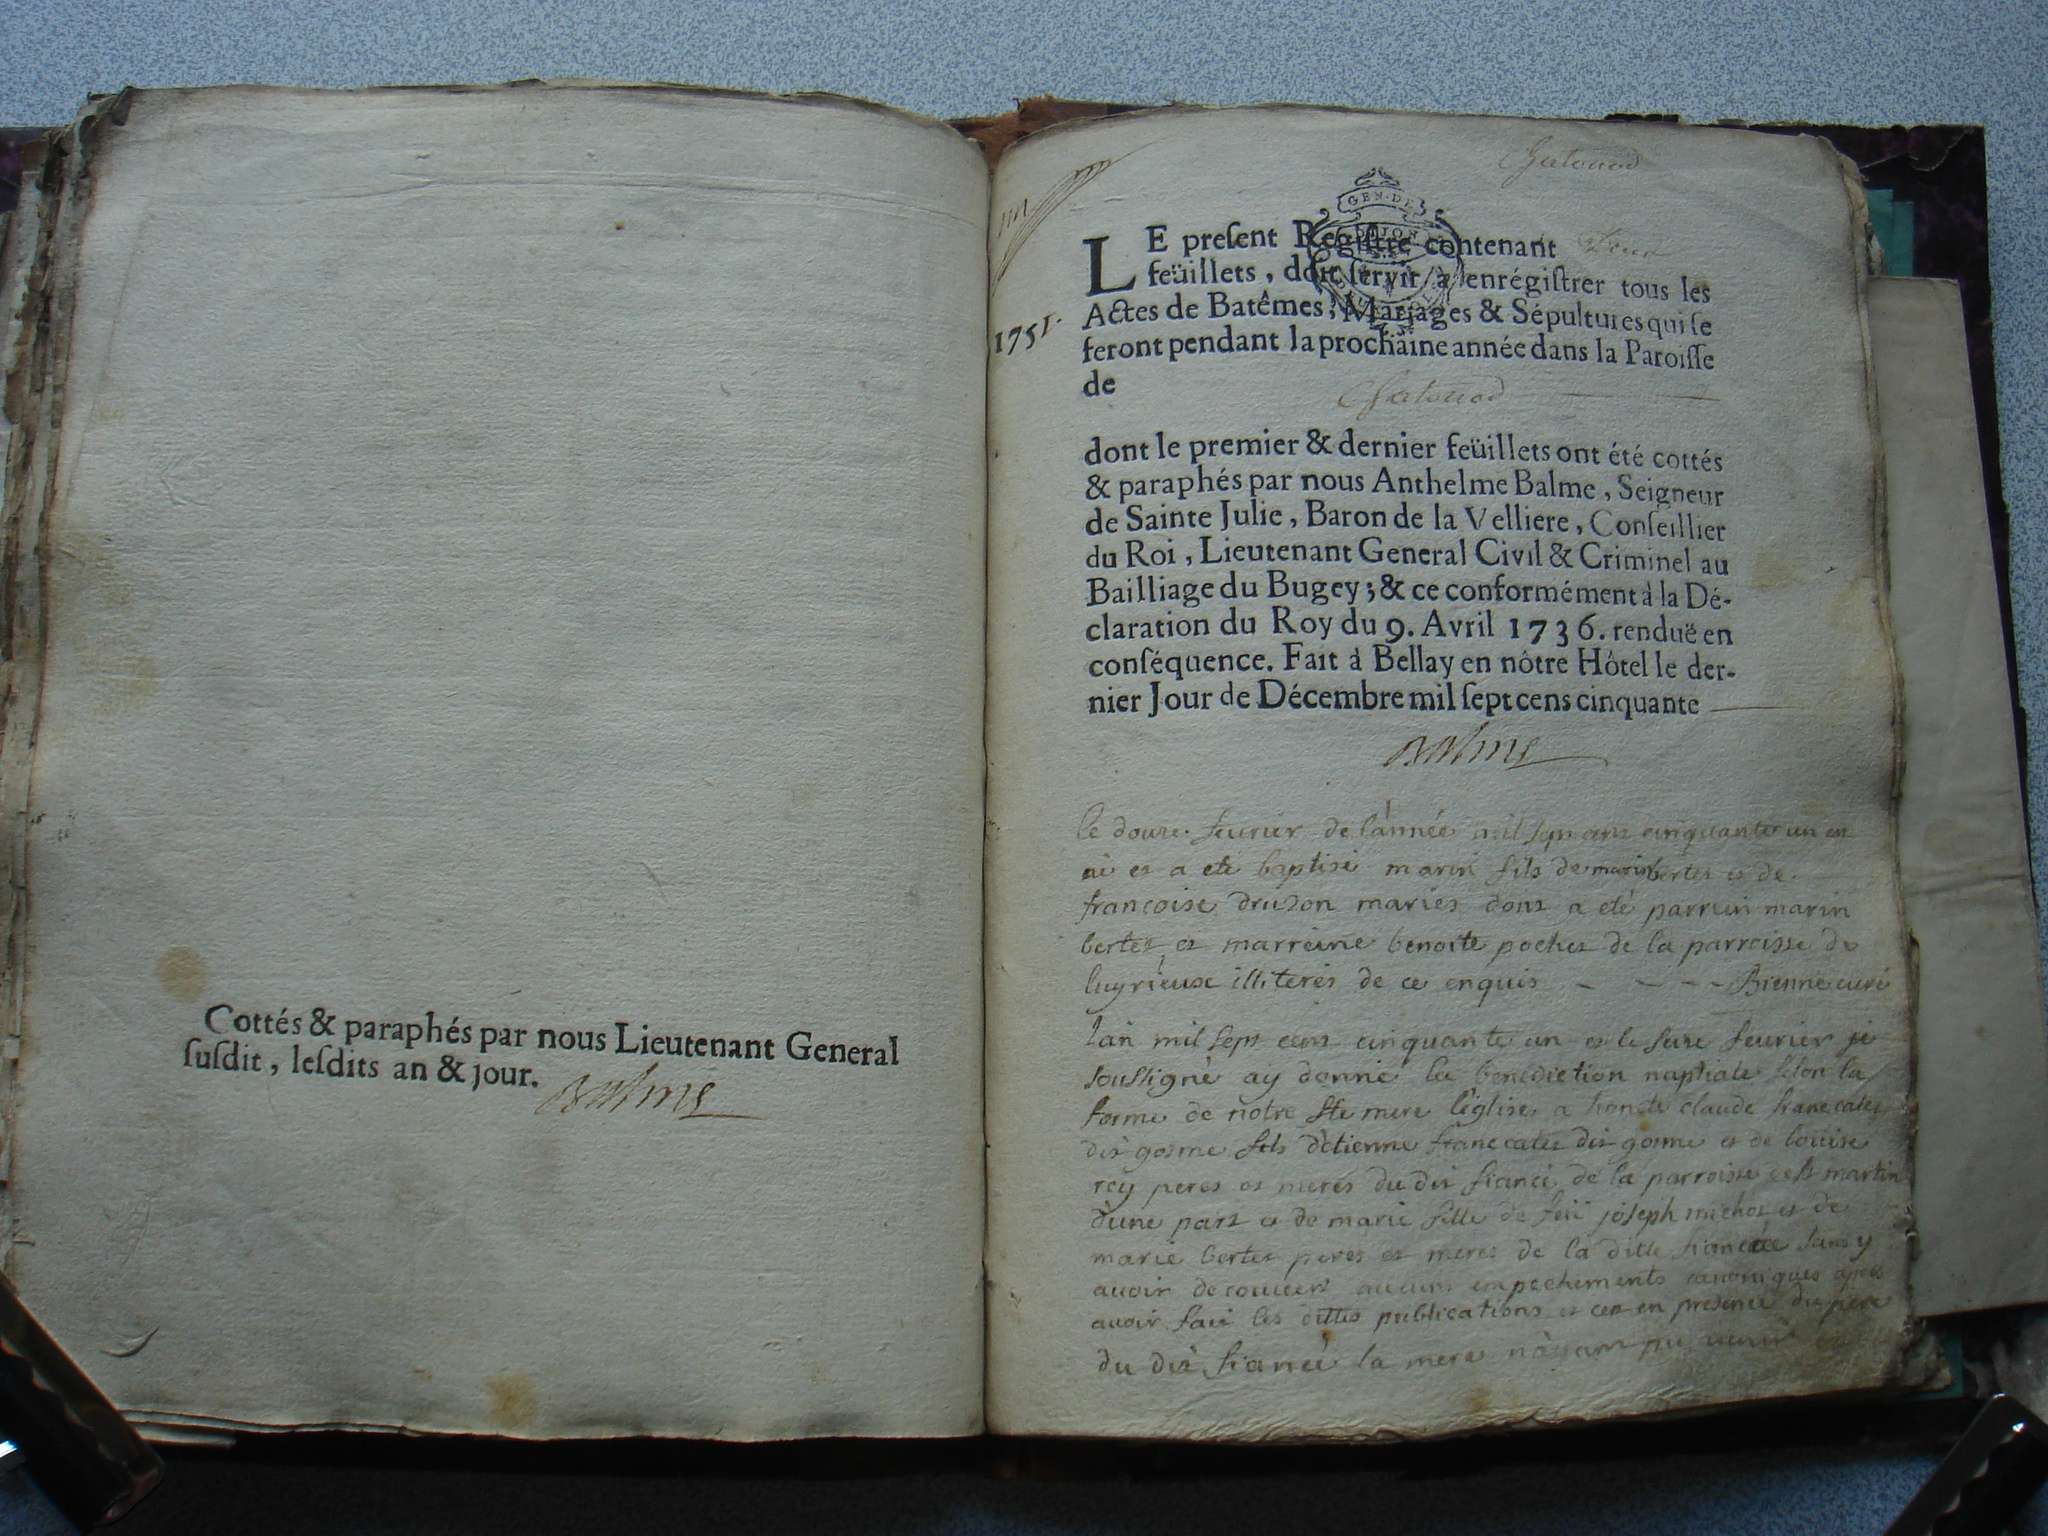 Cottés & paraphés par nous Lieutenant General
ſuſdit, leſdits an & jour. Balme
GEN·DE
DIJON
1751.
LE preſent Regiſtre contenant
feüillets, doit ſervir à enrégiſtrer tous les
Actes de Batêmes, Mariages & Sépultures qui ſe
feront pendant la prochaine année dans la Paroiſſe
de
dont le premier & dernier feüillets ont été cottés
& paraphés par nous Anthelme Balme, Seigneur
de Sainte Julie, Baron de la Velliere, Conſeillier
du Roi, Lieutenant General Civil & Criminel au
Bailliage du Bugey; & ce conformément à la Dé-
claration du Roy du 9. Avril 1736. renduë en
conſéquence. Fait à Bellay en nôtre Hôtel le der-
nier Jour de Décembre mil ſept cens cinquante
Balme
le douze feurier de l'année mil sept cens cinquante un es
né et a eté baptisé marin fils de marin bertet et de
francoise druson mariés dont a eté parrein marin
bertet et marreine benoite pochet de la parroisse de
luyrieux illiterés de ce enquis - - - - Bienne curé
l'an mil sept cens cinquante un et le seize feurier je
soussigné ay donné la benediction nuptiale selon la
forme de notre ste mere l'eglise a honete claude francatet
dit gosme fils d'etienne francatet dit gosme et de louise
rey peres et meres du dit fiancé de la parroisse de st martin
d'une part et de marie fille de feü joseph michot et de
marie bertet peres et meres de la ditte fiancée sans y
avoir decouvert aucuns empechements canoniques après
avoir fait les dittes publications et cet en presence du pere
du dit fiancé la mere n'ayant pu venir